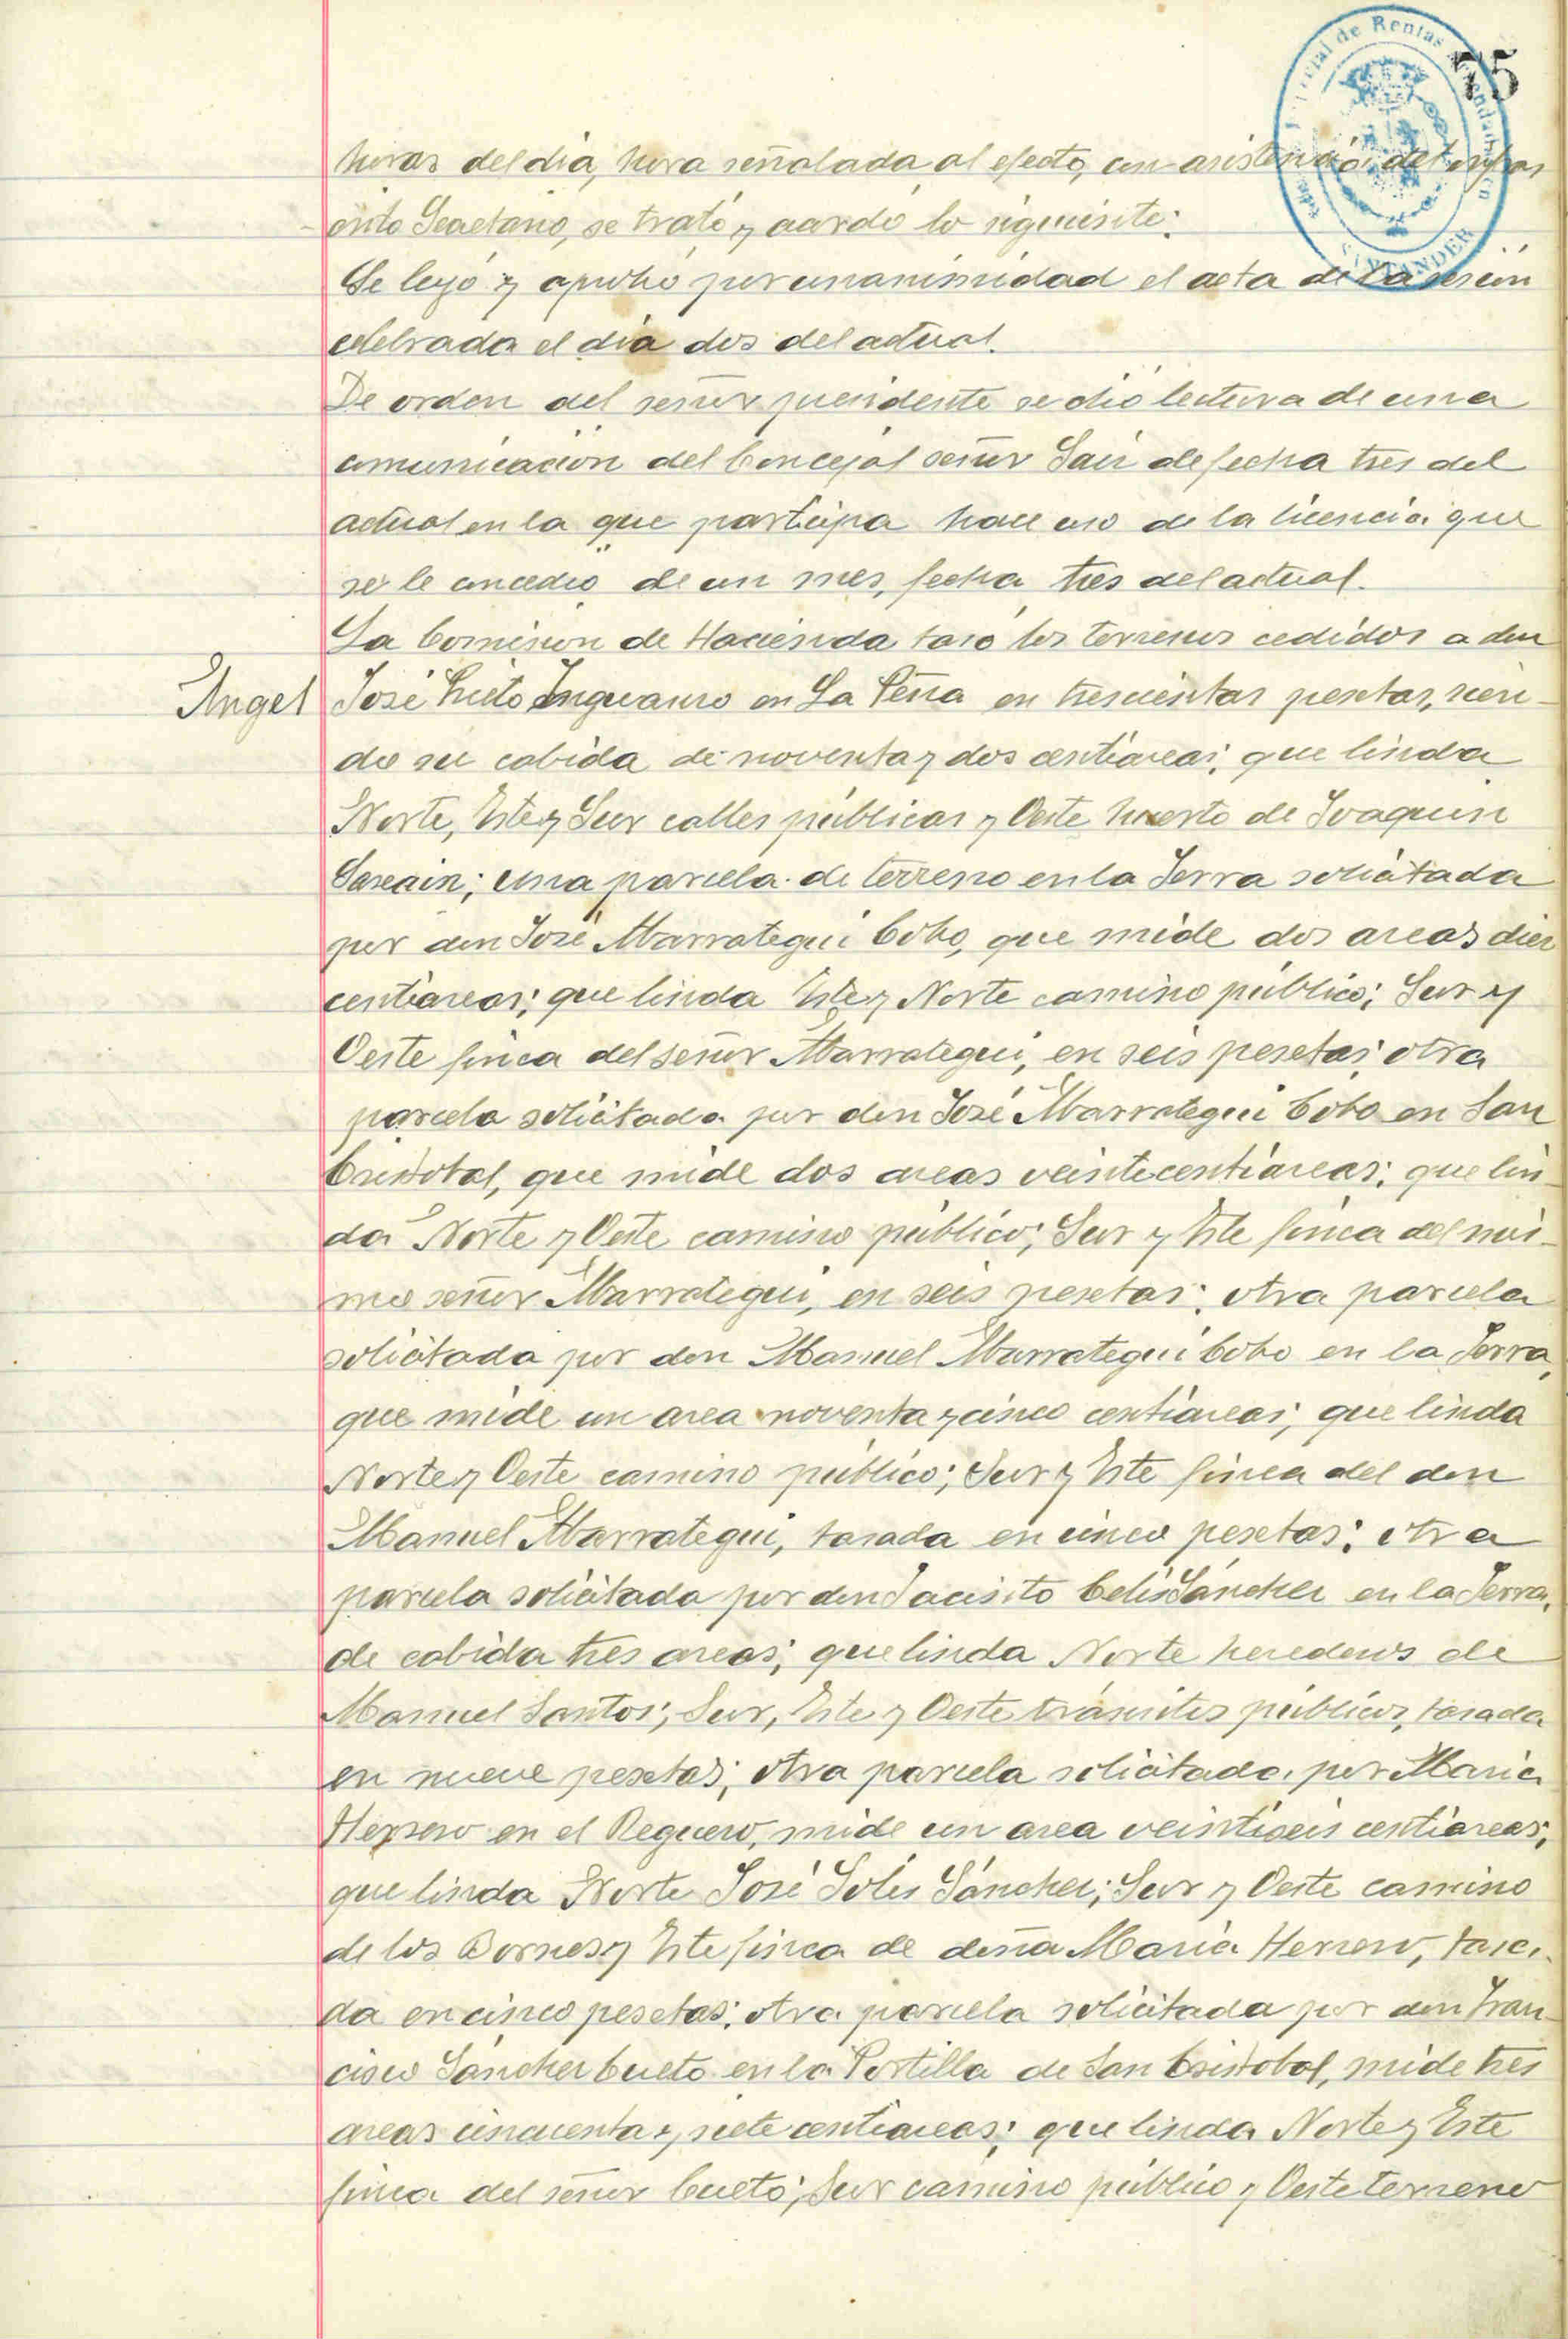 75
de Rentas
SANTANDER
horas del dia, hora señalada al efecto, con asistencia del infras
crito Secretario, se trató y acordó lo siguiente:
Se leyó y aprobó por unanimidad el acta de la sesión
celebrada el día dos del actual.
De orden del señor presidente se dió lectura de una
comunicación del Concejal señor Saiz de fecha tres del
actual en la que participa hace uso de la licencia que
se le concedió de un mes, fecha tres del actual.
La Comisión de Hacienda tasó los terrenos cedidos a don
Angel
José Inguanzo en La Peña en trescientas pesetas, sien-
do su cabida de noventa y dos centiáreas; que linda
Norte, Este y Sur calles públicas y Oeste huerto de Joaquin
; una parcela de terreno en la Serra solicitada
por don José Marrategui Cobo, que mide dos areas diez
centiareas; que linda Este y Norte camino público; Sur y
Oeste finca del señor Marrategui, en seis pesetas; otra
parcela solicitada por don José Marrategui Cobo en San
Cristobal, que mide dos areas veinte centiáreas; que lin-
da Norte y Oeste camino público; Sur y Este finca del mis-
mo señor Marrategui, en seis pesetas; otra parcela
solicitada por don Manuel Marrategui Cobo en la Serra,
que mide un area noventa y cinco centiáreas; que linda
Norte y Oeste camino público; Sur y Este finca del don
Manuel Marrategui, tasada en cinco pesetas; otra
parcela solicitada por don Jacinto Celis Sánchez en la Serra,
de cabida tres areas; que linda Norte herederos de
Manuel Santos; Sur, Este y Oeste tránsitos públicos, tasada
en nueve pesetas; otra parcela solicitada por Maria
Herrero en el Reguero, mide un area veintiseis centiareas;
que linda Norte José Solis Sánchez; Sur y Oeste camino
de los Bornes y Este finca de doña Maria Herrero, tasa-
da en cinco pesetas; otra parcela solicitada por don Fran-
cisco Sánchez Cueto en la Portilla de San Cristobal, mide tres
areas cincuenta y siete centiareas; que linda Norte y Este
finca del señor Cueto; Sur camino público y Oeste terreno